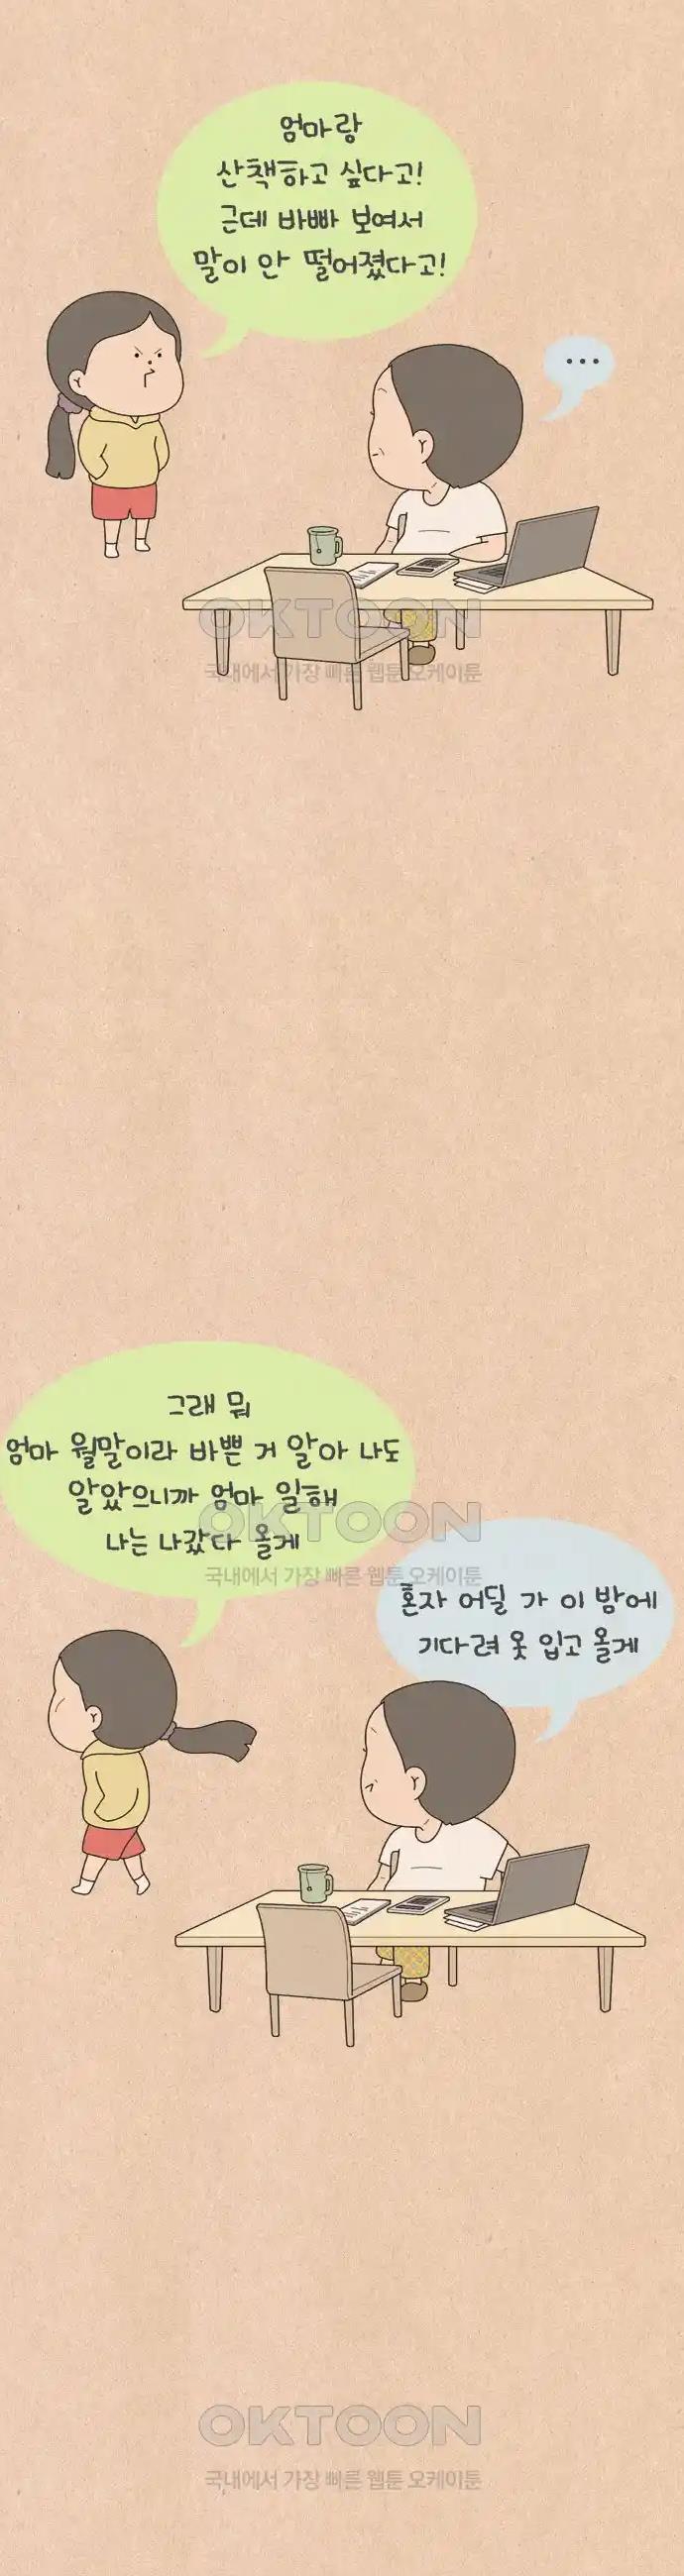 엄마랑
산책하고 싶다고!
근데 바빠 보여서
말이 안 떨어졌다고!
...
OKTOON
국내에서 가장 빠른 웹툰 오케이툰
그래 뭐
엄마 월말이라 바쁜 거 알아 나도
알았으니까 엄마 일해
나는 나갔다 올게
OKTOON
국내에서 가장 빠른 웹툰 오케이툰
혼자 어딜 가 이 밤에
기다려 옷 입고 올게
OKTOON
국내에서 가장 빠른 웹툰 오케이툰